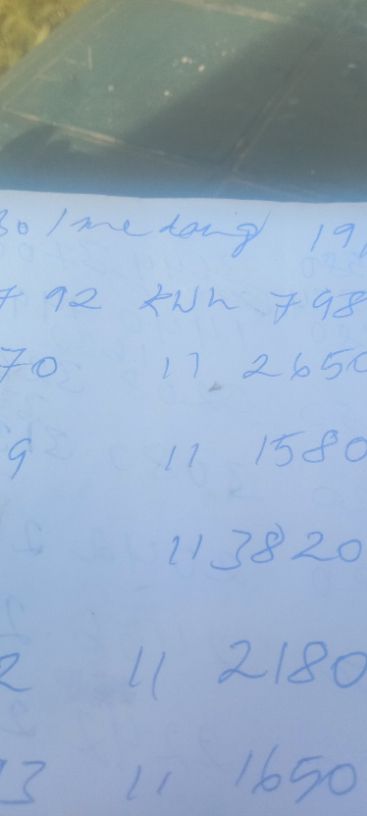 30 191
792 KWh 798
70 11 2650
9 11 1580
11 3820
2 11 2180
93 11 1650